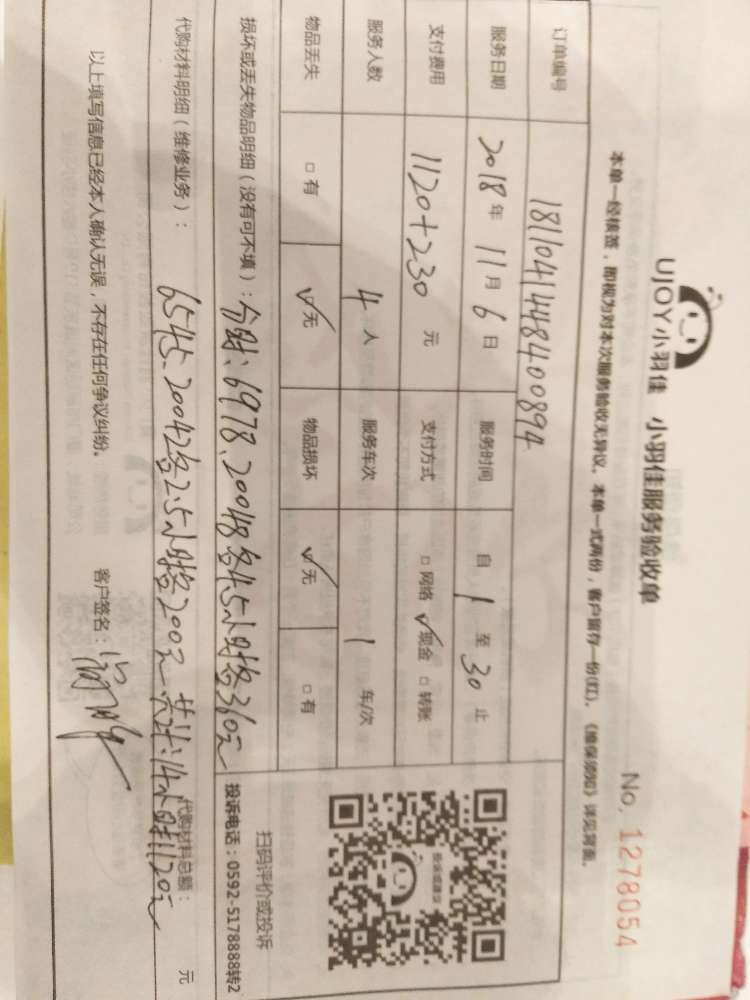 UJOY小羽佳 小羽佳服务验收单
No. 1278054
本单一经核签，即视为对本次服务验收无异议。本单一式两份，客户留存一份(红)。《维保须知》详见背面。
订单编号 181104144848400894
服务日期 2018年11月6日 服务时间 自1至30止
支付费用 1120+230元 支付方式 □网络 ☑现金 □转账
服务人数 4人 服务车次 1车/次
物品丢失 □有 ☑无 物品损坏 ☑无 □有
损坏或丢失物品明细（没有可不填）：分时：6978、20048各4.5小时各360元
代购材料明细（维修业务）：6545、20042各2.5小时各200元 共计：14小时1120元 代购材料总额： 元
以上填写信息已经本人确认无误，不存在任何争议纠纷。 客户签名：
扫码评价或投诉
投诉电话：0592-5178888转2